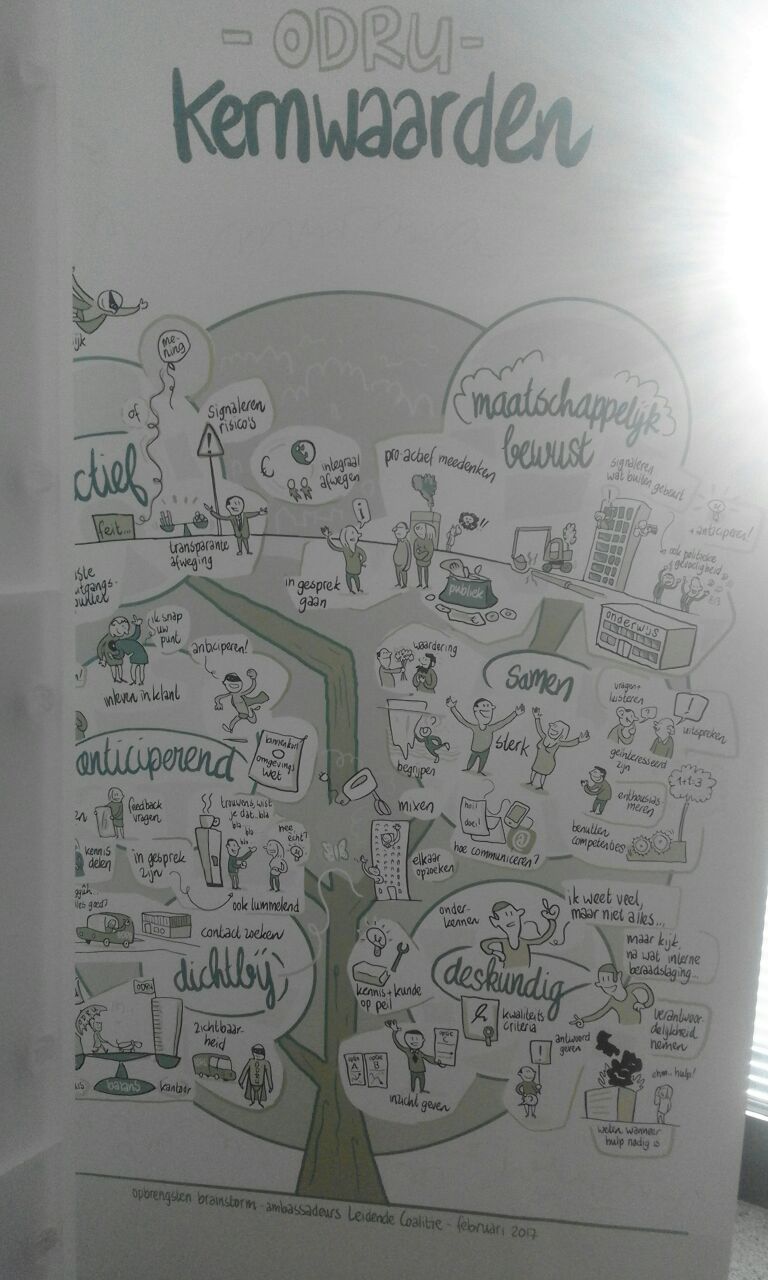 - ODRU -
kernwaarden
me-
ning
of
signaleren
risico's
ctief
feit...
transparante
afweging
€
integraal
afwegen
pro-actief meedenken
in gesprek
gaan
i
!!
publiek
maatschappelijk
bewust
signaleren
wat buiten gebeurt
+ anticiperen!
ook politieke
gevoeligheid
onderwijs
ik snap
uw
punt
inleven in klant
anticiperen!
waardering
samen
sterk
begrijpen
vragen+
luisteren
uitspreken
geïnteresseerd
zijn
enthousias-
meren
1+1=3
benutten
competenties
anticiperend
binnenkort
omgevings
wet
mixen
hoi!
doei!
hoe communiceren?
feedback
vragen
trouwens, wist
je dat..bla
bla
bla
bla
nee
echt?
kennis
delen
in gesprek
zijn
ook lummelend
elkaar
opzoeken
contact zoeken
dichtbij
ODRU
zichtbaar-
heid
balans
kantoor
onder-
kennen
ik weet veel,
maar niet alles...
maar kijk,
na wat interne
beraadslaging...
deskundig
kennis+kunde
op peil
kwaliteits
criteria
verantwoor-
delijkheid
nemen
antwoord
geven
optie
A
optie
B
optie
C
inzicht geven
hulp!
weten wanneer
hulp nodig is
opbrengsten brainstorm - ambassadeurs Leidende Coalitie - februari 2017